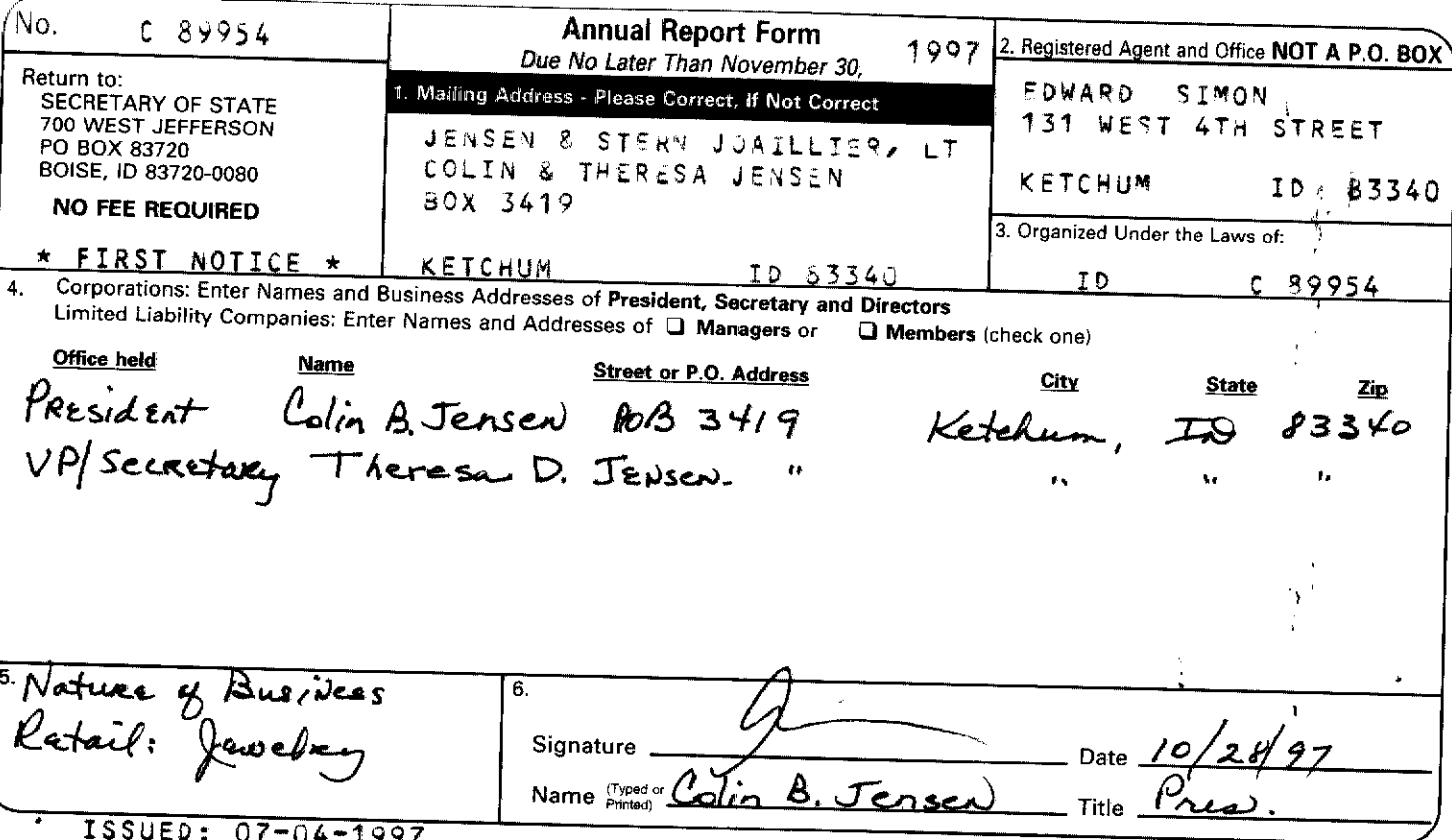 No. C 89954
Return to:
SECRETARY OF STATE
700 WEST JEFFERSON
PO BOX 83720
BOISE, ID 83720-0080
NO FEE REQUIRED
* FIRST NOTICE *
Annual Report Form 1997
Due No Later Than November 30,
1. Mailing Address - Please Correct, If Not Correct
JENSEN & STERN JOAILLIER, LT
COLIN & THERESA JENSEN
BOX 3419
KETCHUM ID 83340
2. Registered Agent and Office NOT A P.O. BOX
EDWARD SIMON
131 WEST 4TH STREET
KETCHUM ID 83340
3. Organized Under the Laws of:
ID C 89954
4. Corporations: Enter Names and Business Addresses of President, Secretary and Directors
Limited Liability Companies: Enter Names and Addresses of ❑ Managers or ❑ Members (check one)
Office held Name Street or P.O. Address City State Zip
President Colin B. Jensen POB 3419 Ketchum, ID 83340
VP/Secretary Theresa D. Jensen. " " " "
5. Nature of Business
Retail: Jewelry
6.
Signature Date 10/28/97
Name (Typed or Printed) Colin B. Jensen Title Pres.
ISSUED: 07-04-1997